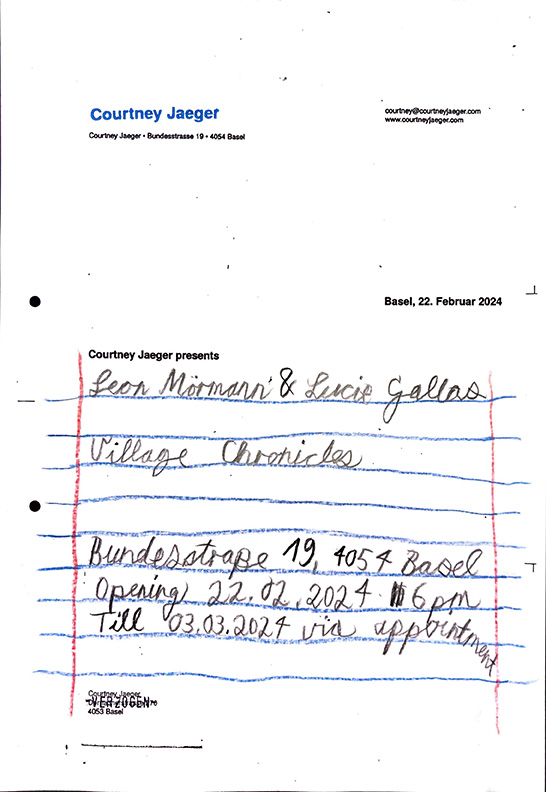 Courtney Jaeger
courtney@courtneyjaeger.com
www.courtneyjaeger.com
Courtney Jaeger • Bundesstrasse 19 • 4054 Basel
Basel, 22. Februar 2024
Courtney Jaeger presents
Leon Mörmann & Lucie Gallas
Village Chronicles
Bundesstraße 19, 4054 Basel
Opening 22.02.2024 6pm
Till 03.03.2024 via appointment
Courtney Jaeger
VERZOGEN
4053 Basel